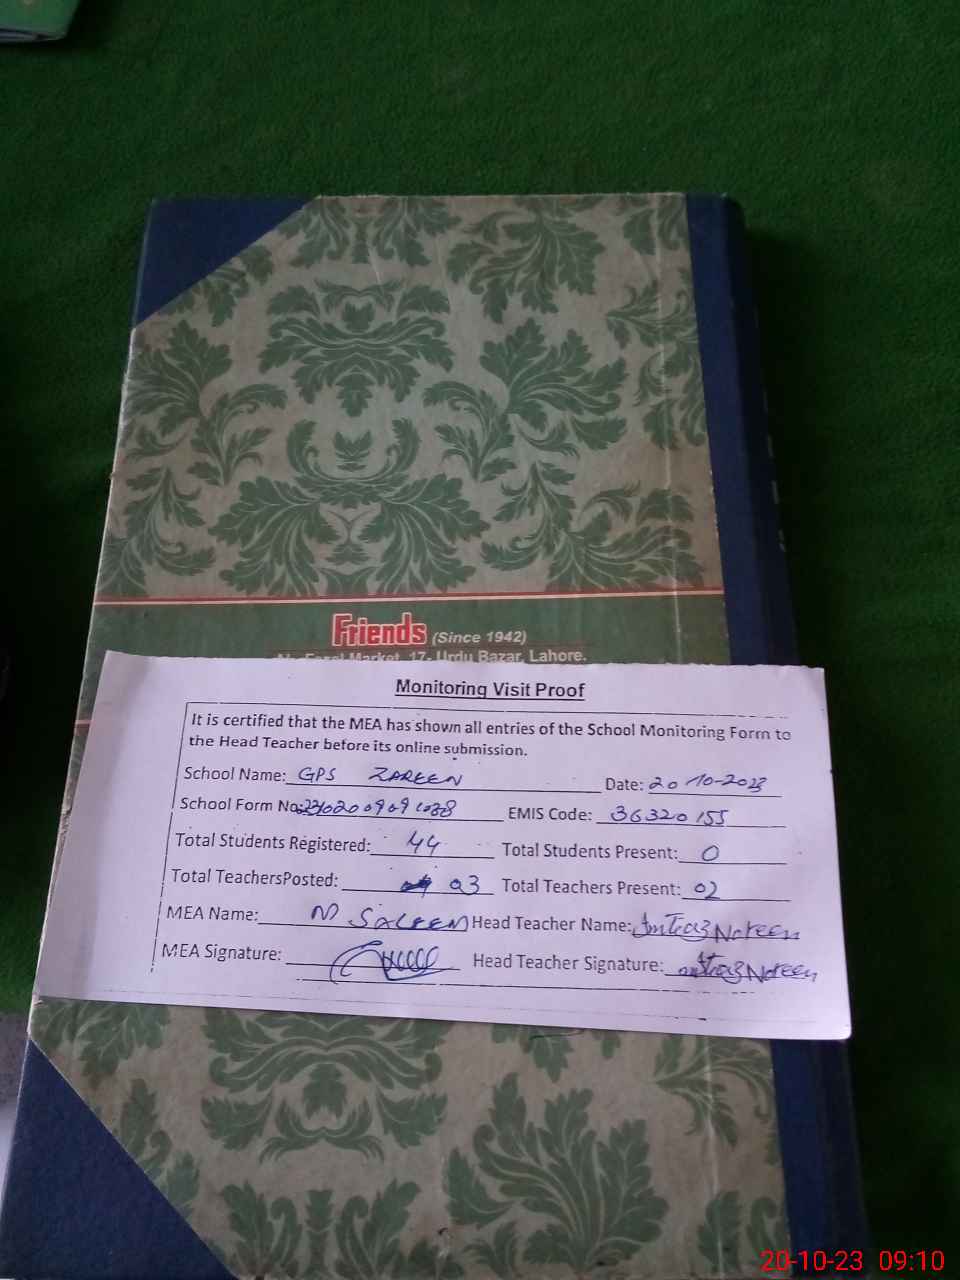 Friends (Since 1942)
Market, 17- Urdu Bazar, Lahore.
Monitoring Visit Proof
It is certified that the MEA has shown all entries of the School Monitoring Form to
the Head Teacher before its online submission.
School Name: GPS ZAREEN Date: 20 10-2023
School Form No: EMIS Code: 36320155
Total Students Registered: 44 Total Students Present: 0
Total TeachersPosted: 03 Total Teachers Present: 02
MEA Name: M SALEEM Head Teacher Name: Noreen
MEA Signature: Head Teacher Signature: Noreen
20-10-23 09:10